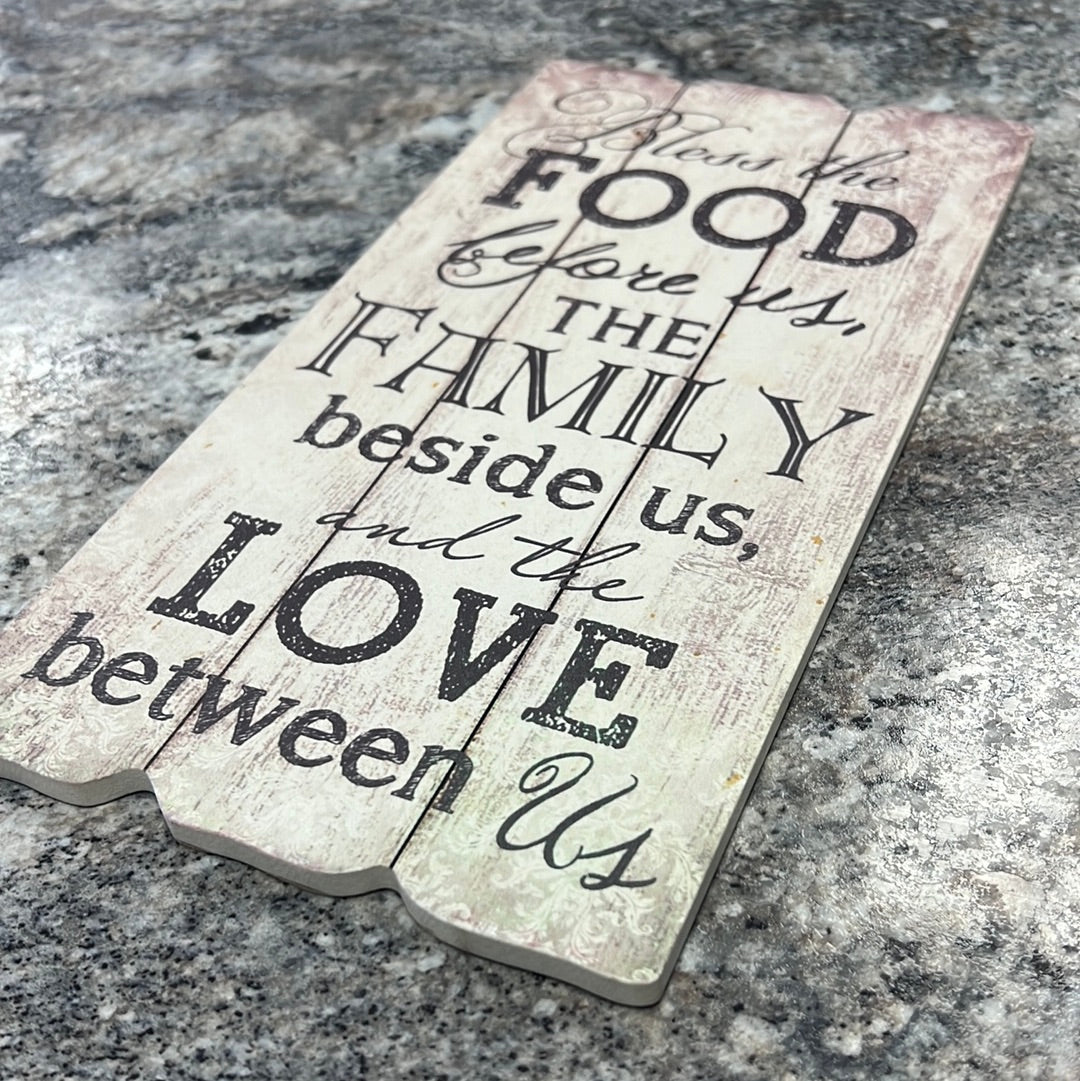 Bless the
FOOD
before us,
THE
FAMILY
beside us,
and the
LOVE
between Us